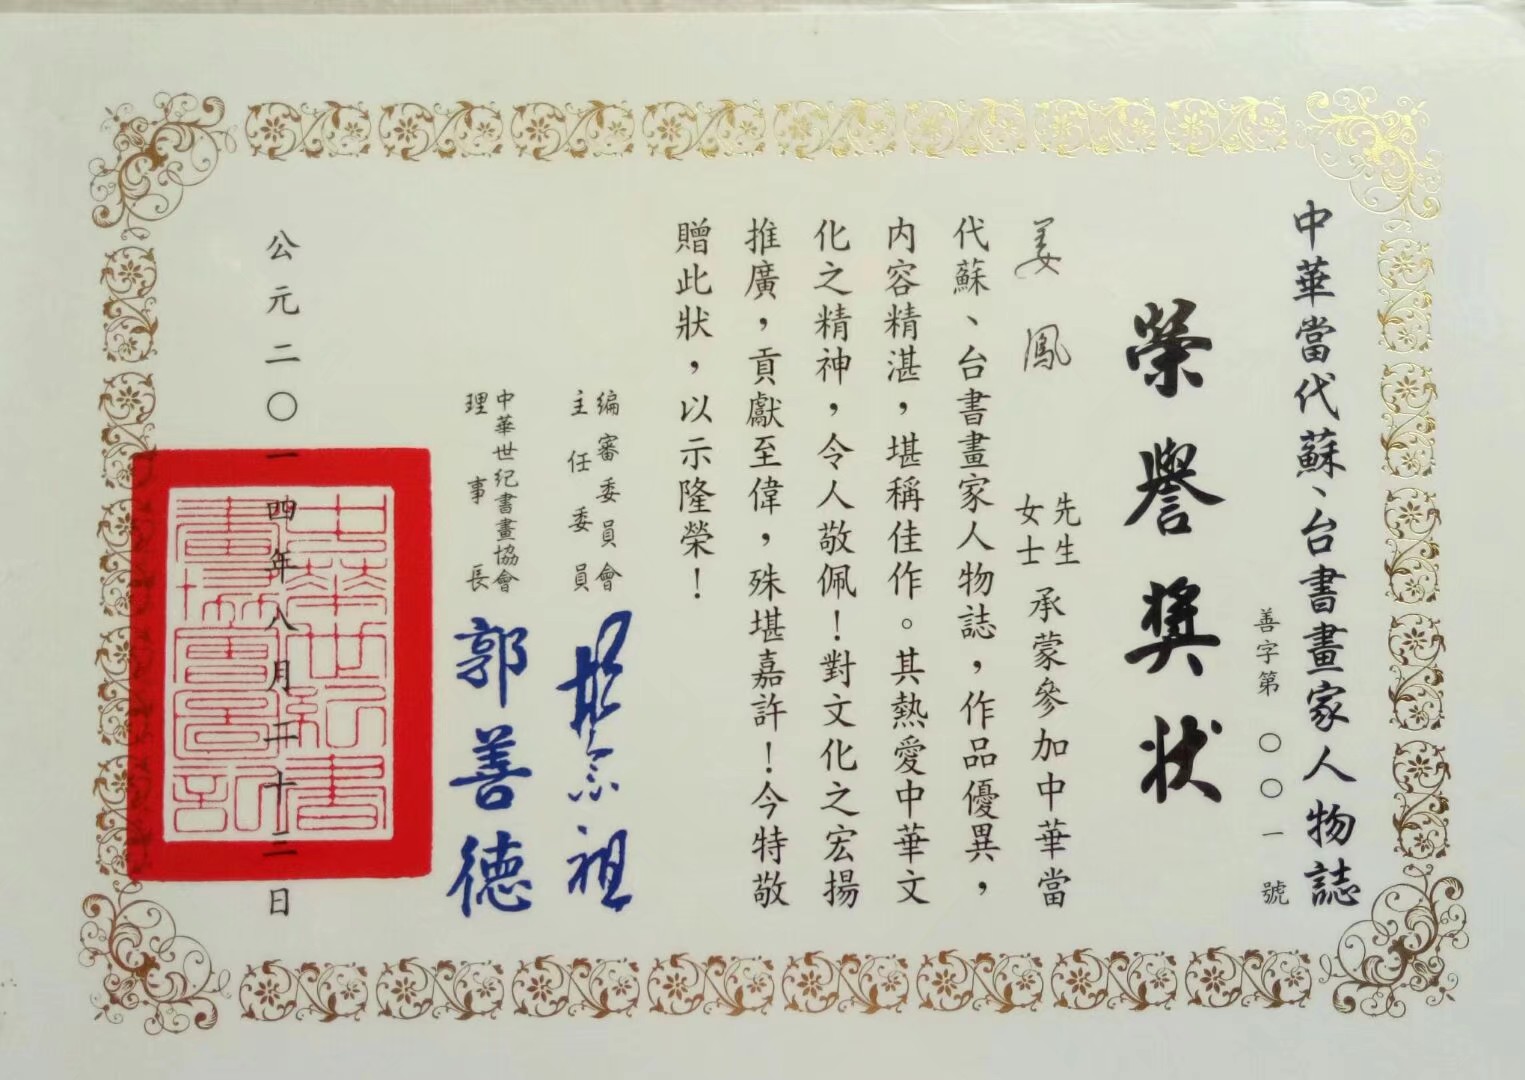 中華當代蘇、台書畫家人物誌
善字第〇〇一號
榮譽獎狀
姜鳳 先生
女士 承蒙參加中華當
代蘇、台書畫家人物誌，作品優異，
內容精湛，堪稱佳作。其熱愛中華文
化之精神，令人敬佩！對文化之宏揚
推廣，貢獻至偉，殊堪嘉許！今特敬
贈此狀，以示隆榮！
編審委員會
主任委員
祖
中華世紀書畫協會
理事長
郭善德
公元二〇一四年八月二十三日